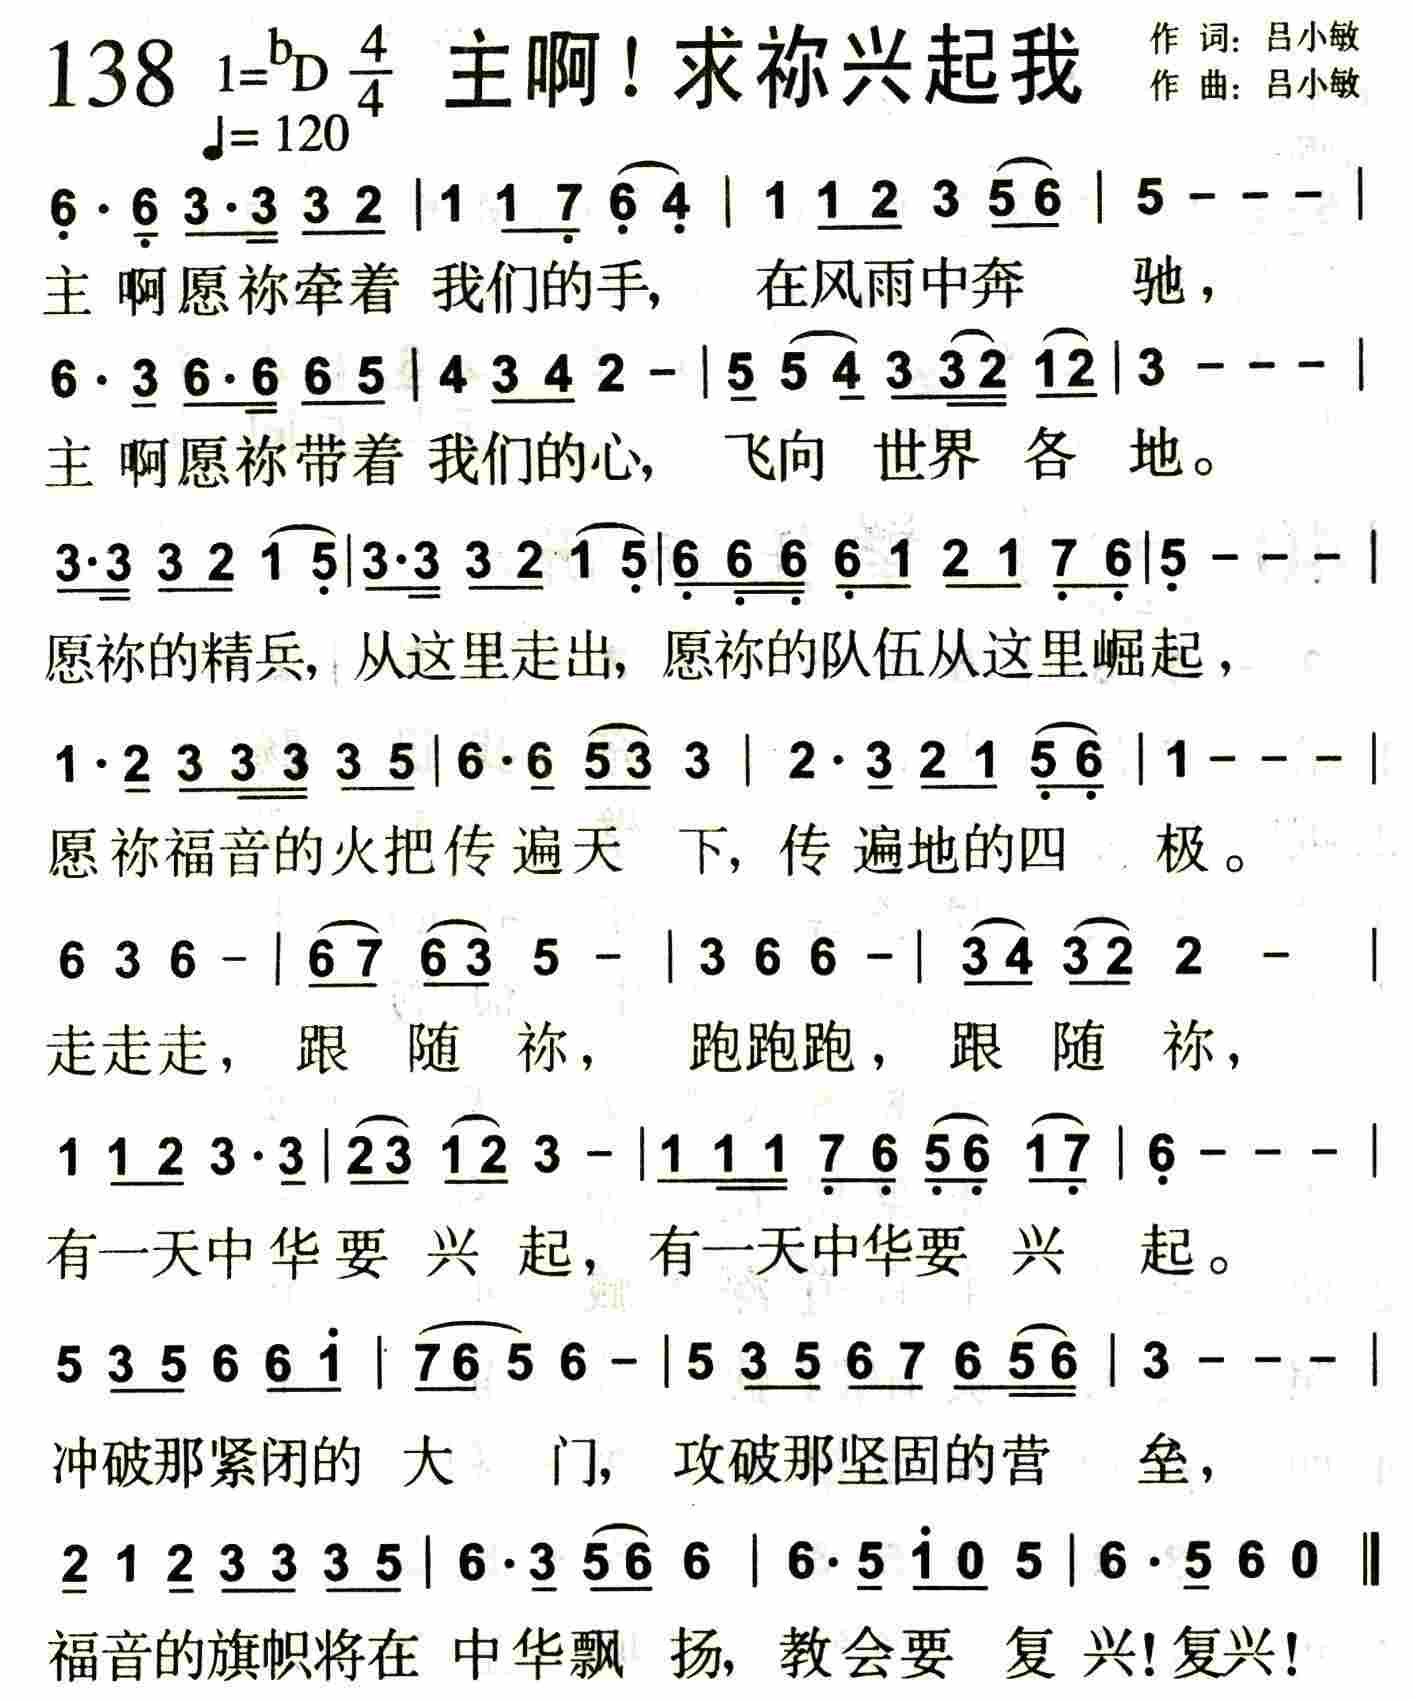 138 1=♭D 4/4 主啊！求祢兴起我 作 词：吕小敏
♩=120 作 曲：吕小敏
6 · 6 3·3 3 2 | 1 1 7 6 4 | 1 1 2 3 5 6 | 5 - - - |
主 啊愿祢牵着 我们的手, 在风雨中奔 驰，
6 · 3 6·6 6 5 | 4 3 4 2 - | 5 5 4 3 3 2 1 2 | 3 - - - |
主 啊愿祢带着 我们的心, 飞向 世界 各 地。
3·3 3 2 1 5 | 3·3 3 2 1 5 | 6 6 6 6 1 2 1 7 6 | 5 - - - |
愿祢的精兵, 从这里走出, 愿祢的队伍从这里崛起，
1 · 2 3 3 3 3 5 | 6 · 6 5 3 3 | 2 · 3 2 1 5 6 | 1 - - - |
愿祢福音的火把传遍天 下, 传遍地的四 极。
6 3 6 - | 6 7 6 3 5 - | 3 6 6 - | 3 4 3 2 2 - |
走走走， 跟 随 祢， 跑跑跑， 跟 随 祢，
1 1 2 3 · 3 | 2 3 1 2 3 - | 1 1 1 7 6 5 6 1 7 | 6 - - - |
有一天中华要 兴 起， 有一天中华要 兴 起。
5 3 5 6 6 1̇ | 7 6 5 6 - | 5 3 5 6 7 6 5 6 | 3 - - - |
冲破那紧闭的 大 门, 攻破那坚固的营 垒，
2 1 2 3 3 3 5 | 6 · 3 5 6 6 | 6 · 5 1̇ 0 5 | 6 · 5 6 0 ‖
福音的旗帜将在 中华飘 扬, 教会要 复 兴！复兴！